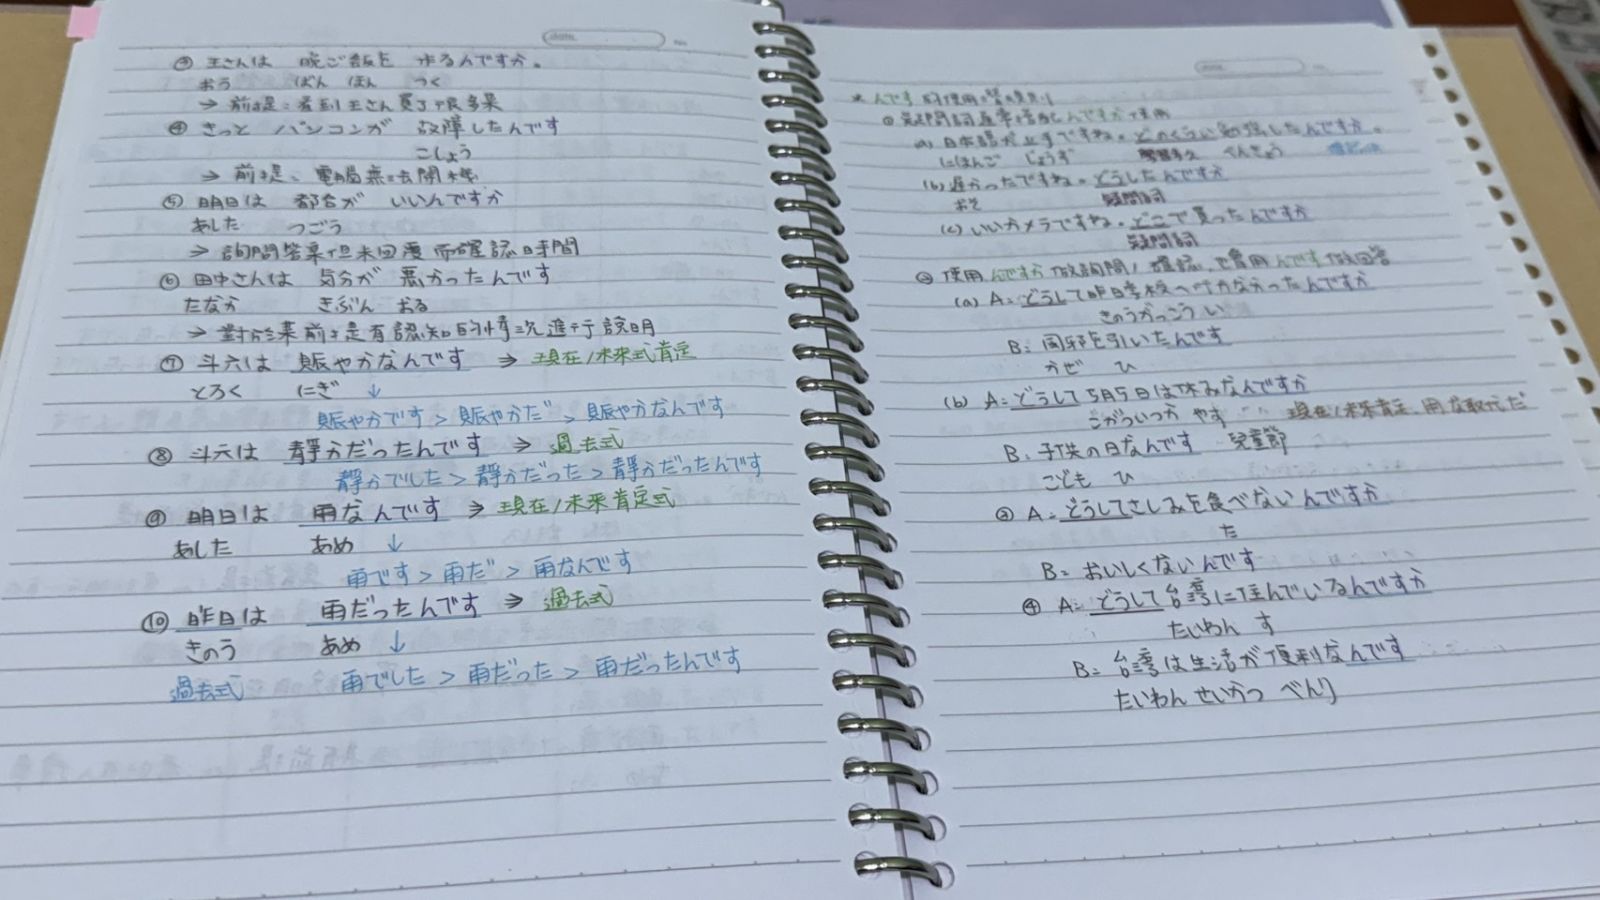 ③ 王さんは 晩ご飯を 作るんですか。
おう ばん はん つく
⇒ 前提：看到王さん買了很多菜
④ きっと パソコンが 故障したんです
こしょう
⇒ 前提、電腦無法開機
⑤ 明日は 都合が いいんですか
あした つごう
⇒ 詢問答案但未回覆而確認時間
⑥ 田中さんは 気分が 悪かったんです
たなか きぶん おる
⇒ 對於某前提有認知的情況進行説明
⑦ 斗六は 賑やかなんです ⇒ 現在/未來式肯定
とろく にぎ ↓
賑やかです > 賑やかだ > 賑やかなんです
⑧ 斗六は 靜かだったんです ⇒ 過去式
靜かでした > 靜かだった > 靜かだったんです
⑨ 明日は 雨なんです ⇒ 現在/未來肯定式
あした あめ ↓
雨です > 雨だ > 雨なんです
⑩ 昨日は 雨だったんです ⇒ 過去式
きのう あめ ↓
過去式 雨でした > 雨だった > 雨だったんです
* んです 的使用
① 疑問詞通常搭配んですか使用
(a) 日本語が上手ですね。どのくらい勉強したんですか。
にほんご じょうず べんきょう
(b) 遅かったですね。どうしたんですか
おそ 疑問詞
(c) いいカメラですね。どこで買ったんですか
疑問詞
② 使用んですか做詢問/確認，也會用んです做回答
(a) A: どうして昨日学校へ行かなかったんですか
きのうがっこう い
B: 風邪を引いたんです
かぜ ひ
(b) A: どうして5月5日は休みなんですか
ごがついつか やす 現在/未來肯定，用な取代だ
B: 子供の日なんです 兒童節
こども ひ
③ A: どうしてさしみを食べないんですか
た
B: おいしくないんです
④ A: どうして台湾に住んでいるんですか
たいわん す
B: 台湾は生活が便利なんです
たいわん せいかつ べんり